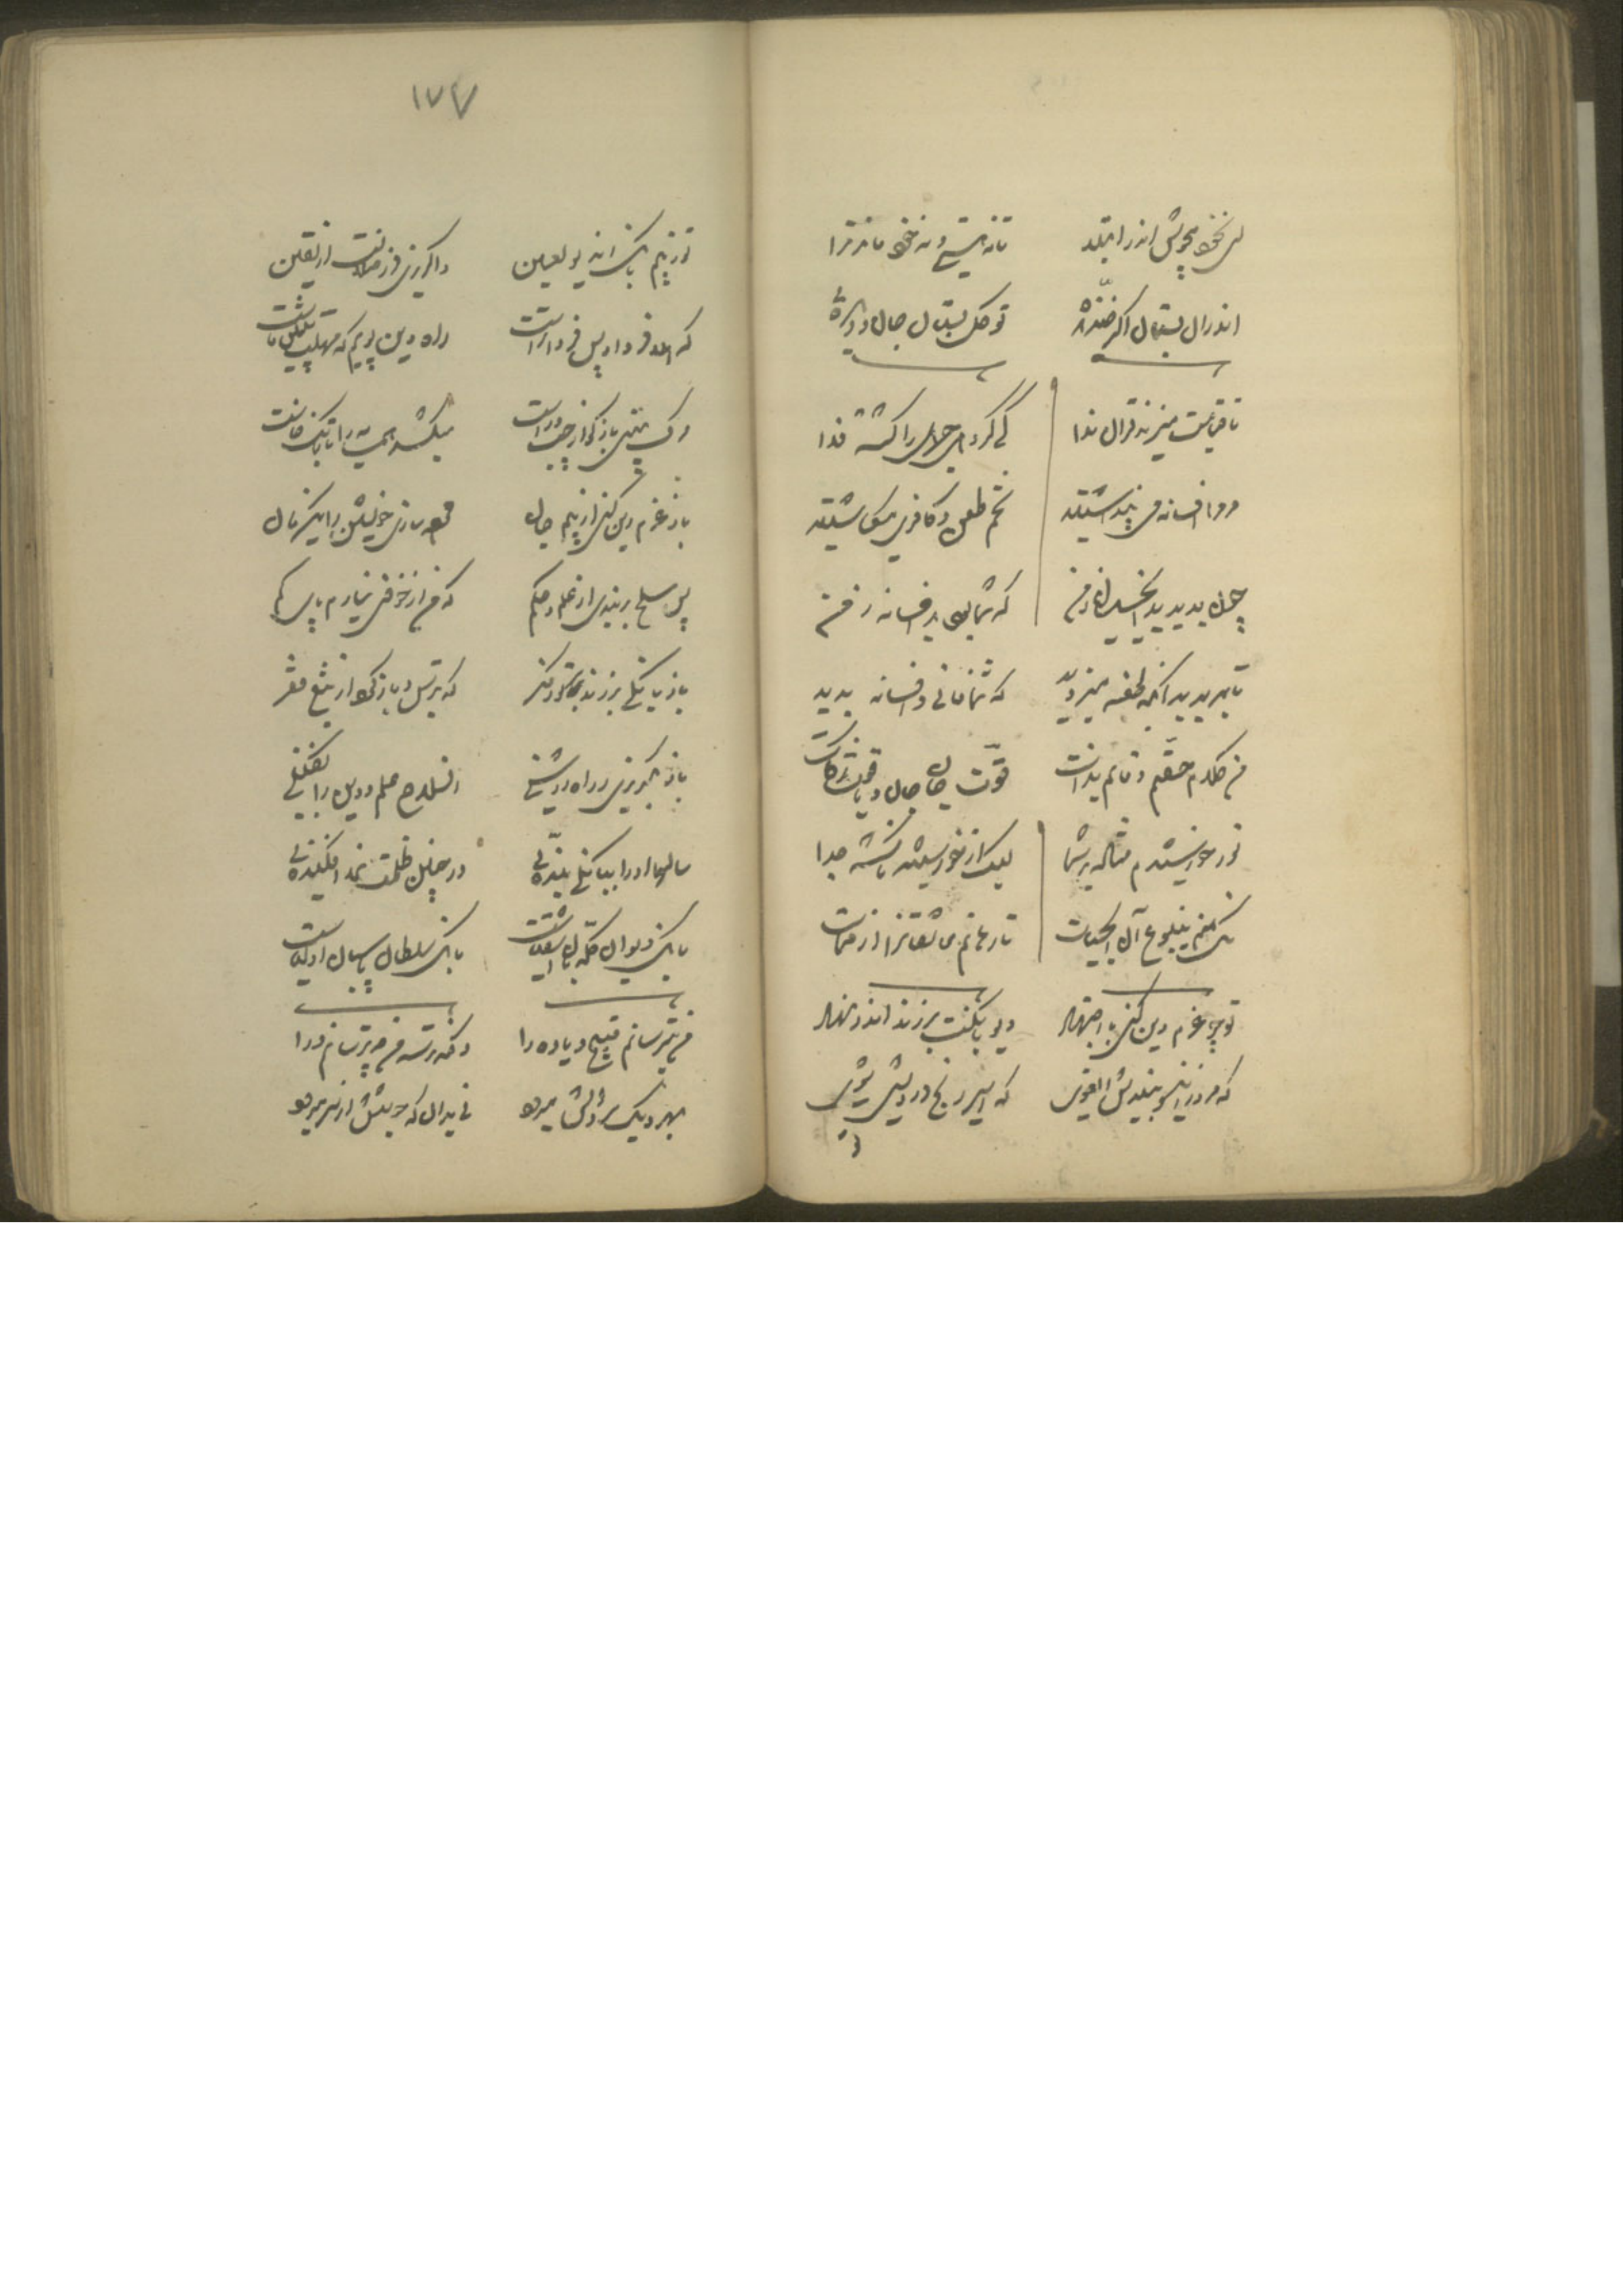 ای نخود میجوش اندر ابتلا تا نه هستی و نه خود ماند ترا
اندران بستان اگر خندیدهٔ تو گل بستان جان و دیدهٔ
تا قیامت میزند قران ندا کای گروهی جهل را گشته فدا
مر مرا افسانه می پنداشتید تخم طعن و کافری میکاشتید
چون بدیدید ای خسیسان زمن که شما بودید افسانه زمن
تا بدیدید آنکه طعنه میزدید که شما فانی و افسانه بدید
من کلام حقم و قائم بذات قوّت جان جان و یاقوت زکات
نور خورشیدم فتاده بر شما لیک از خورشید ناگشته جدا
نک منم ینبوع آن آب الحیات تا رهانم عاشقانرا از ممات
تو چو عزم دین کنی با اجتهاد دیو بانگت برزند اندر نهاد
که مرو زینسو بیندیش ای غوی که اسیر رنج و درویشی شوی
۱۷۷
تو ز بیم بانگ ان دیو لعین واگریزی در ضلالت از یقین
که هلا فردا و پس فردا مراست راه دین پویم که مهلت پیش ماست
مرگ بینی باز کو از چپ و راست میکشد همسایه را تا بانگ خاست
باز عزم دین کنی از بیم جان مرد سازی خویشتن را یک زمان
پس سلح بربندی از علم و حکم که من از خوفی نیارم پای کم
باز بانگی برزند بر تو ز مکر که بترس و باز گرد از تیغ فقر
باز بگریزی ز راه روشنی آن سلاح علم و دین را بفکنی
سالها او را ببانگی بندهٔ در چنین ظلمت نمد افکندهٔ
بانگ دیوان گله بان اشقیاست بانگ سلطان پاسبان اولیاست
من بترسانم وقیح یاوه را وانکه ترسد من چه ترسانم ورا
بهر دیک سرد اتش میرود نی بدان که جوشش از سر میرود